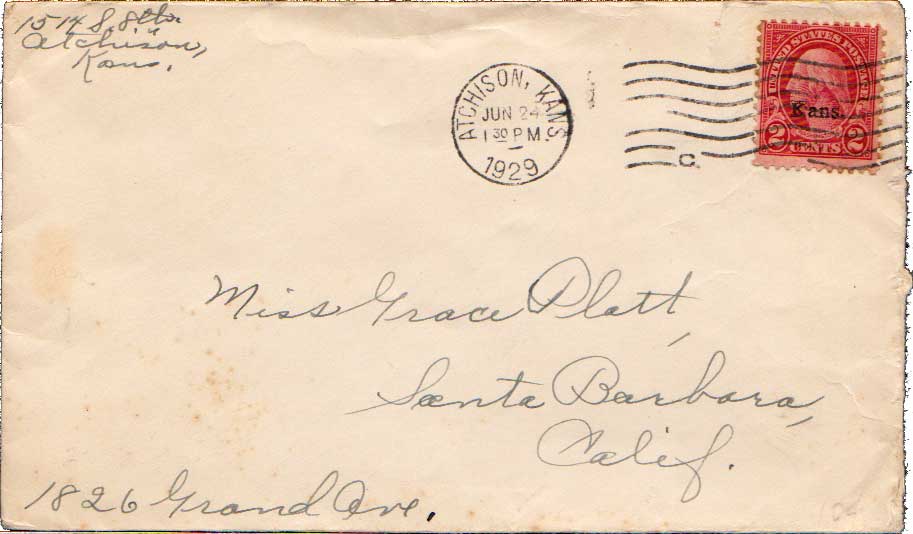 1514 S. 8th.
Atchison,
Kans.
ATCHISON, KANS
JUN 24
1 30 PM
1929
C.
UNITED STATES POSTAGE
Kans.
2 CENTS 2
Miss Grace Platt,
Santa Barbara,
Calif.
1826 Grand Ave.